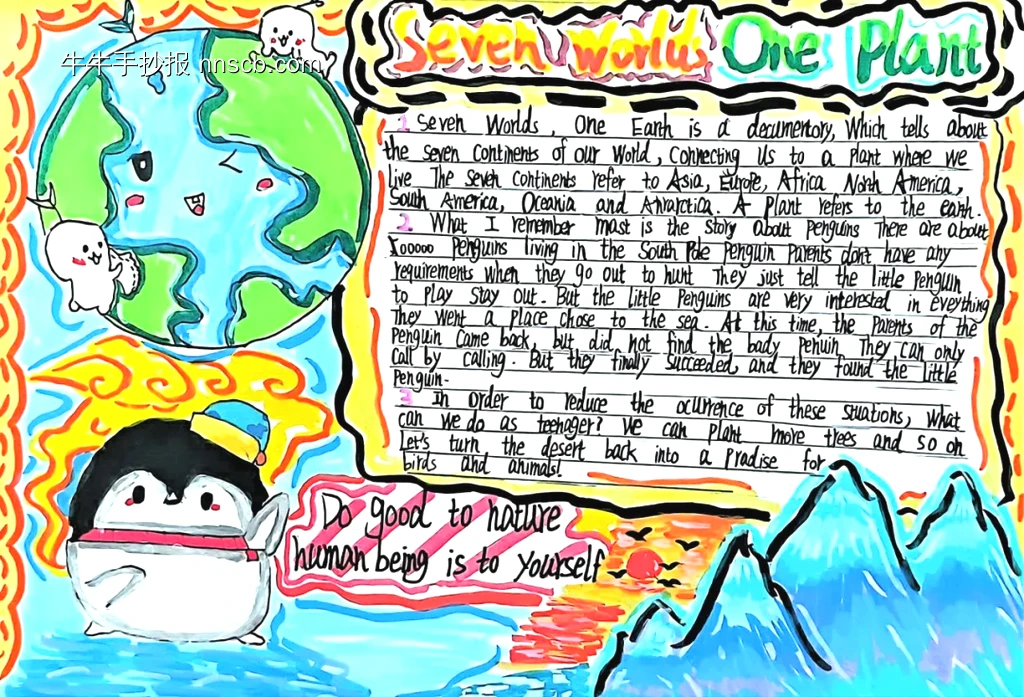 牛牛手抄报 nnscb.com
Seven Worlds One Plant
1. Seven Worlds, One Earth is a decumentory, Which tells about
the seven Continents of our World, Connecting Us to a Plant where we
live The seven Continents refer to Asia, Europe, Africa North America,
South America, Oceania and Antarctica. A Plant refers to the earth.
2. What I remember mast is the story about Penguins There are about
100000 Penguins living in the South Pole Penguin Parents dont have any
requirements when they go out to hunt They just tell the little Penguin
to Play stay out. But the little Penguins are very interested in eveything
They went a Place chose to the sea. At this time, the Parents of the
Penguin Came back, but did not find the bady Penuin They can only
Call by calling. But they finally Succeeded, and they found the little
Penguin.
3. In Order to reduce the ocurrence of these stuations, What
can we do as teenager? We can Plant more trees and so on
Let's turn the desert back into a Pradise for
birds and animals!
Do good to nature
human being is to yourself